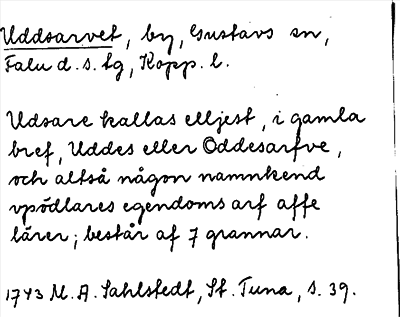 Uddsarvet, by, Gustavs sn,
Falu d. s. tg, Kopp. l.
Udsare kallas elljest, i gamla
bref, Uddes eller Oddesarfve,
och altså någon namnkend
upsödlares egendoms arf affe
lärer; består af 7 grannar.
1743 M. A. Sahlstedt, St. Tuna, s. 39.